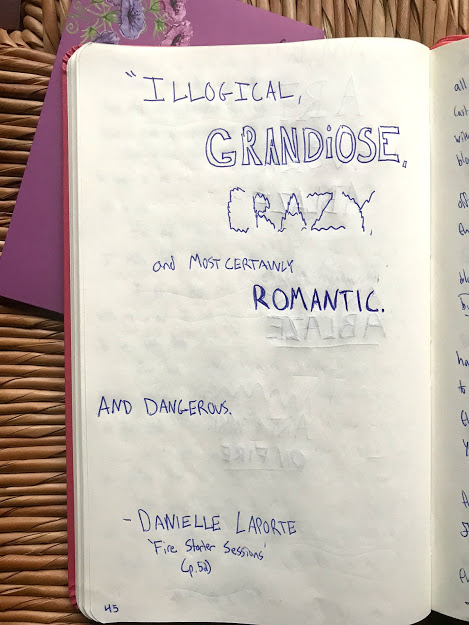 "ILLOGICAL,
GRANDiOSE,
CRAZY,
and MOST CERTAINLY
ROMANTIC.
AND DANGEROUS.
- DANIELLE LAPORTE
'Fire Starter Sessions'
(p.52)
45